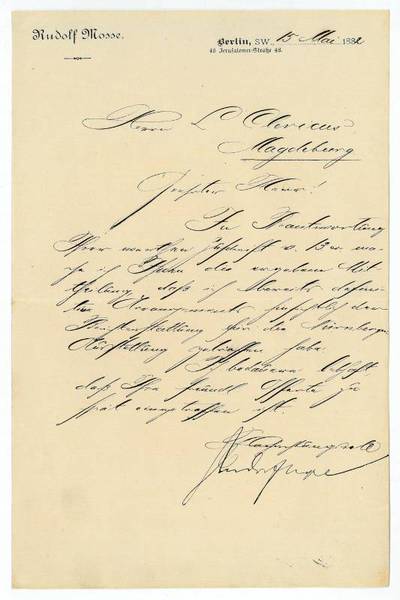 Rudolf Mosse.
Berlin, SW., 15 Mai 1882
48 Jerusalemer-Straße 48.
Herrn L Clericus
Magdeburg
Geehrter Herr!
In Beantwortung
Ihrer werthen Zuschrift v. 13 er ma-
che ich Ihnen die ergebene Mit-
theilung, daß ich bereits defini-
tive Arrangements hinsichtl. der
für die Nürnberger
Ausstellung getroffen habe.
Ich bedaure lebhaft,
daß Ihre freundl Offerte zu
spät eingetroffen ist.
Hochachtungsvoll
Rudolf Mosse